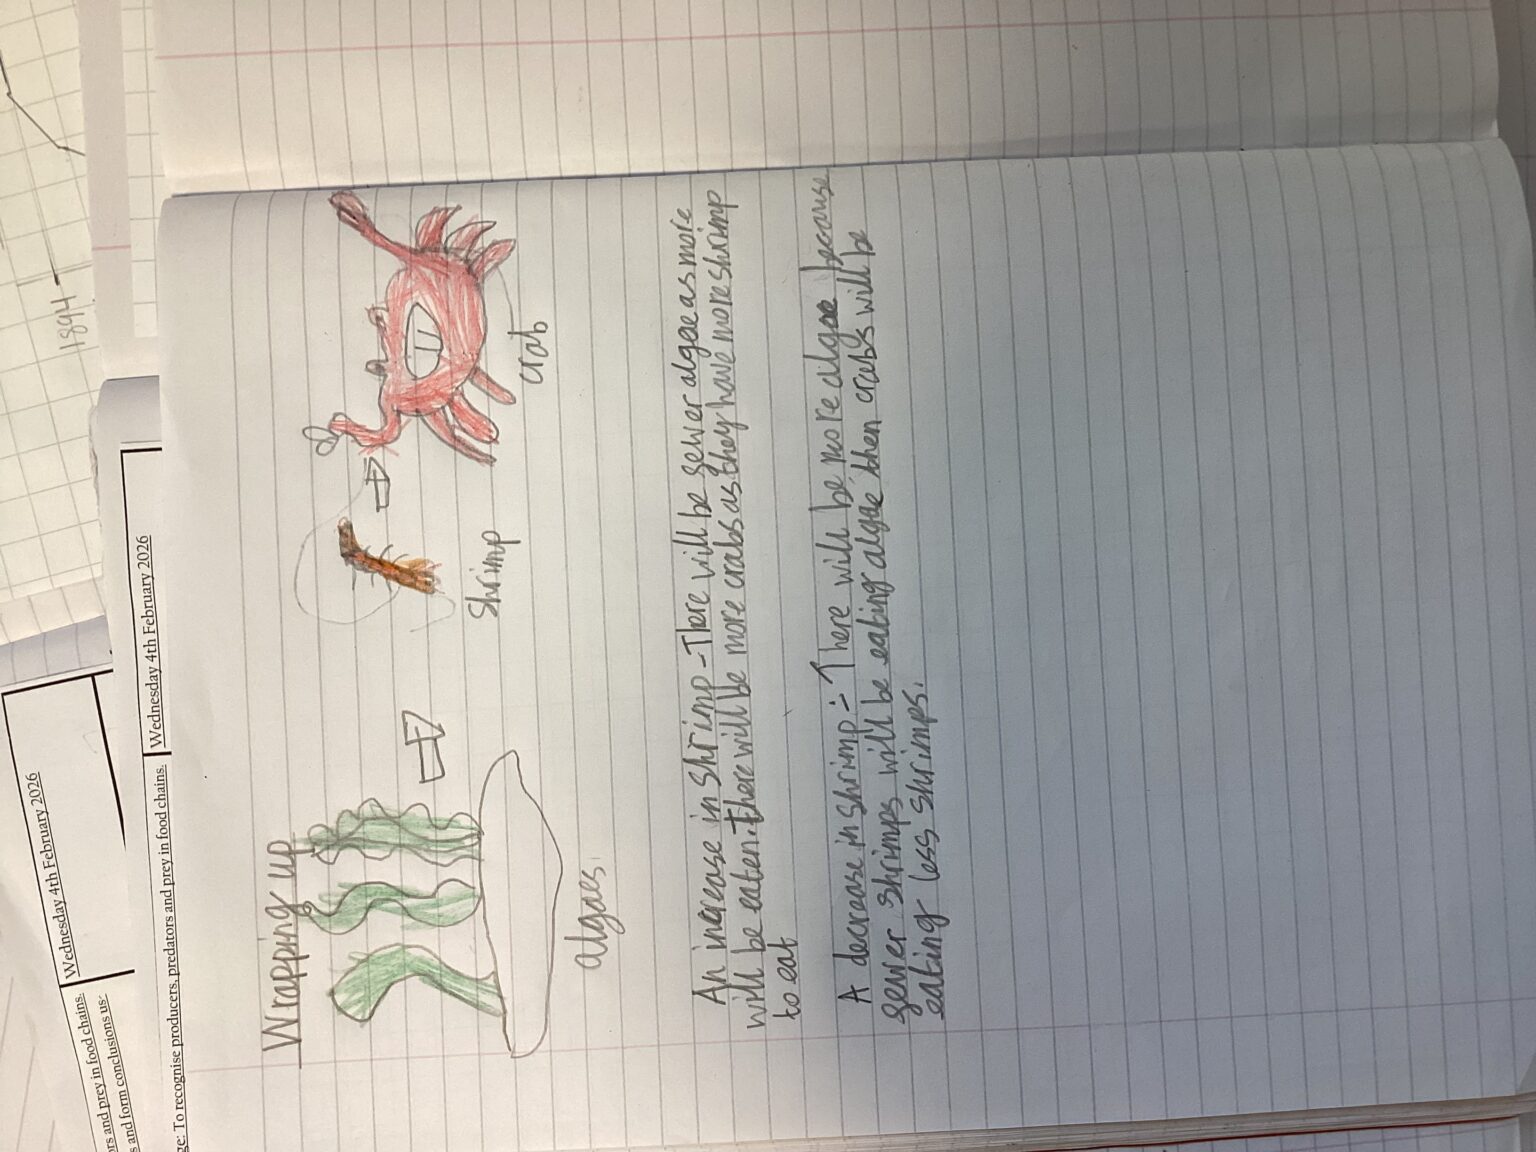 1894
Wednesday 4th February 2026
ors and prey in food chains.
s and form conclusions us-
Wednesday 4th February 2026
ge: To recognise producers, predators and prey in food chains.
Wrapping up
algaes
Shrimp
crab
An increase in shrimp - There will be fewer algae as more
will be eaten. there will be more crabs as they have more shrimp
to eat
A decrease in shrimp - There will be more algae because
fewer shrimps will be eating algae then crabs will be
eating less shrimps.